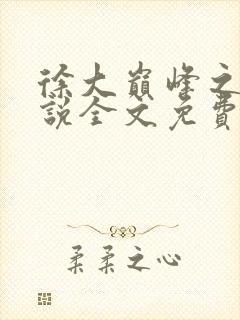 徐大巔峰之
說全文免費
柔柔之心